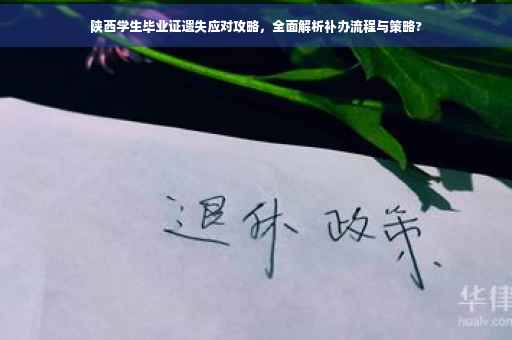 陕西学生毕业证遗失应对攻略，全面解析补办流程与策略?
退休 政策
华律
hualv.com